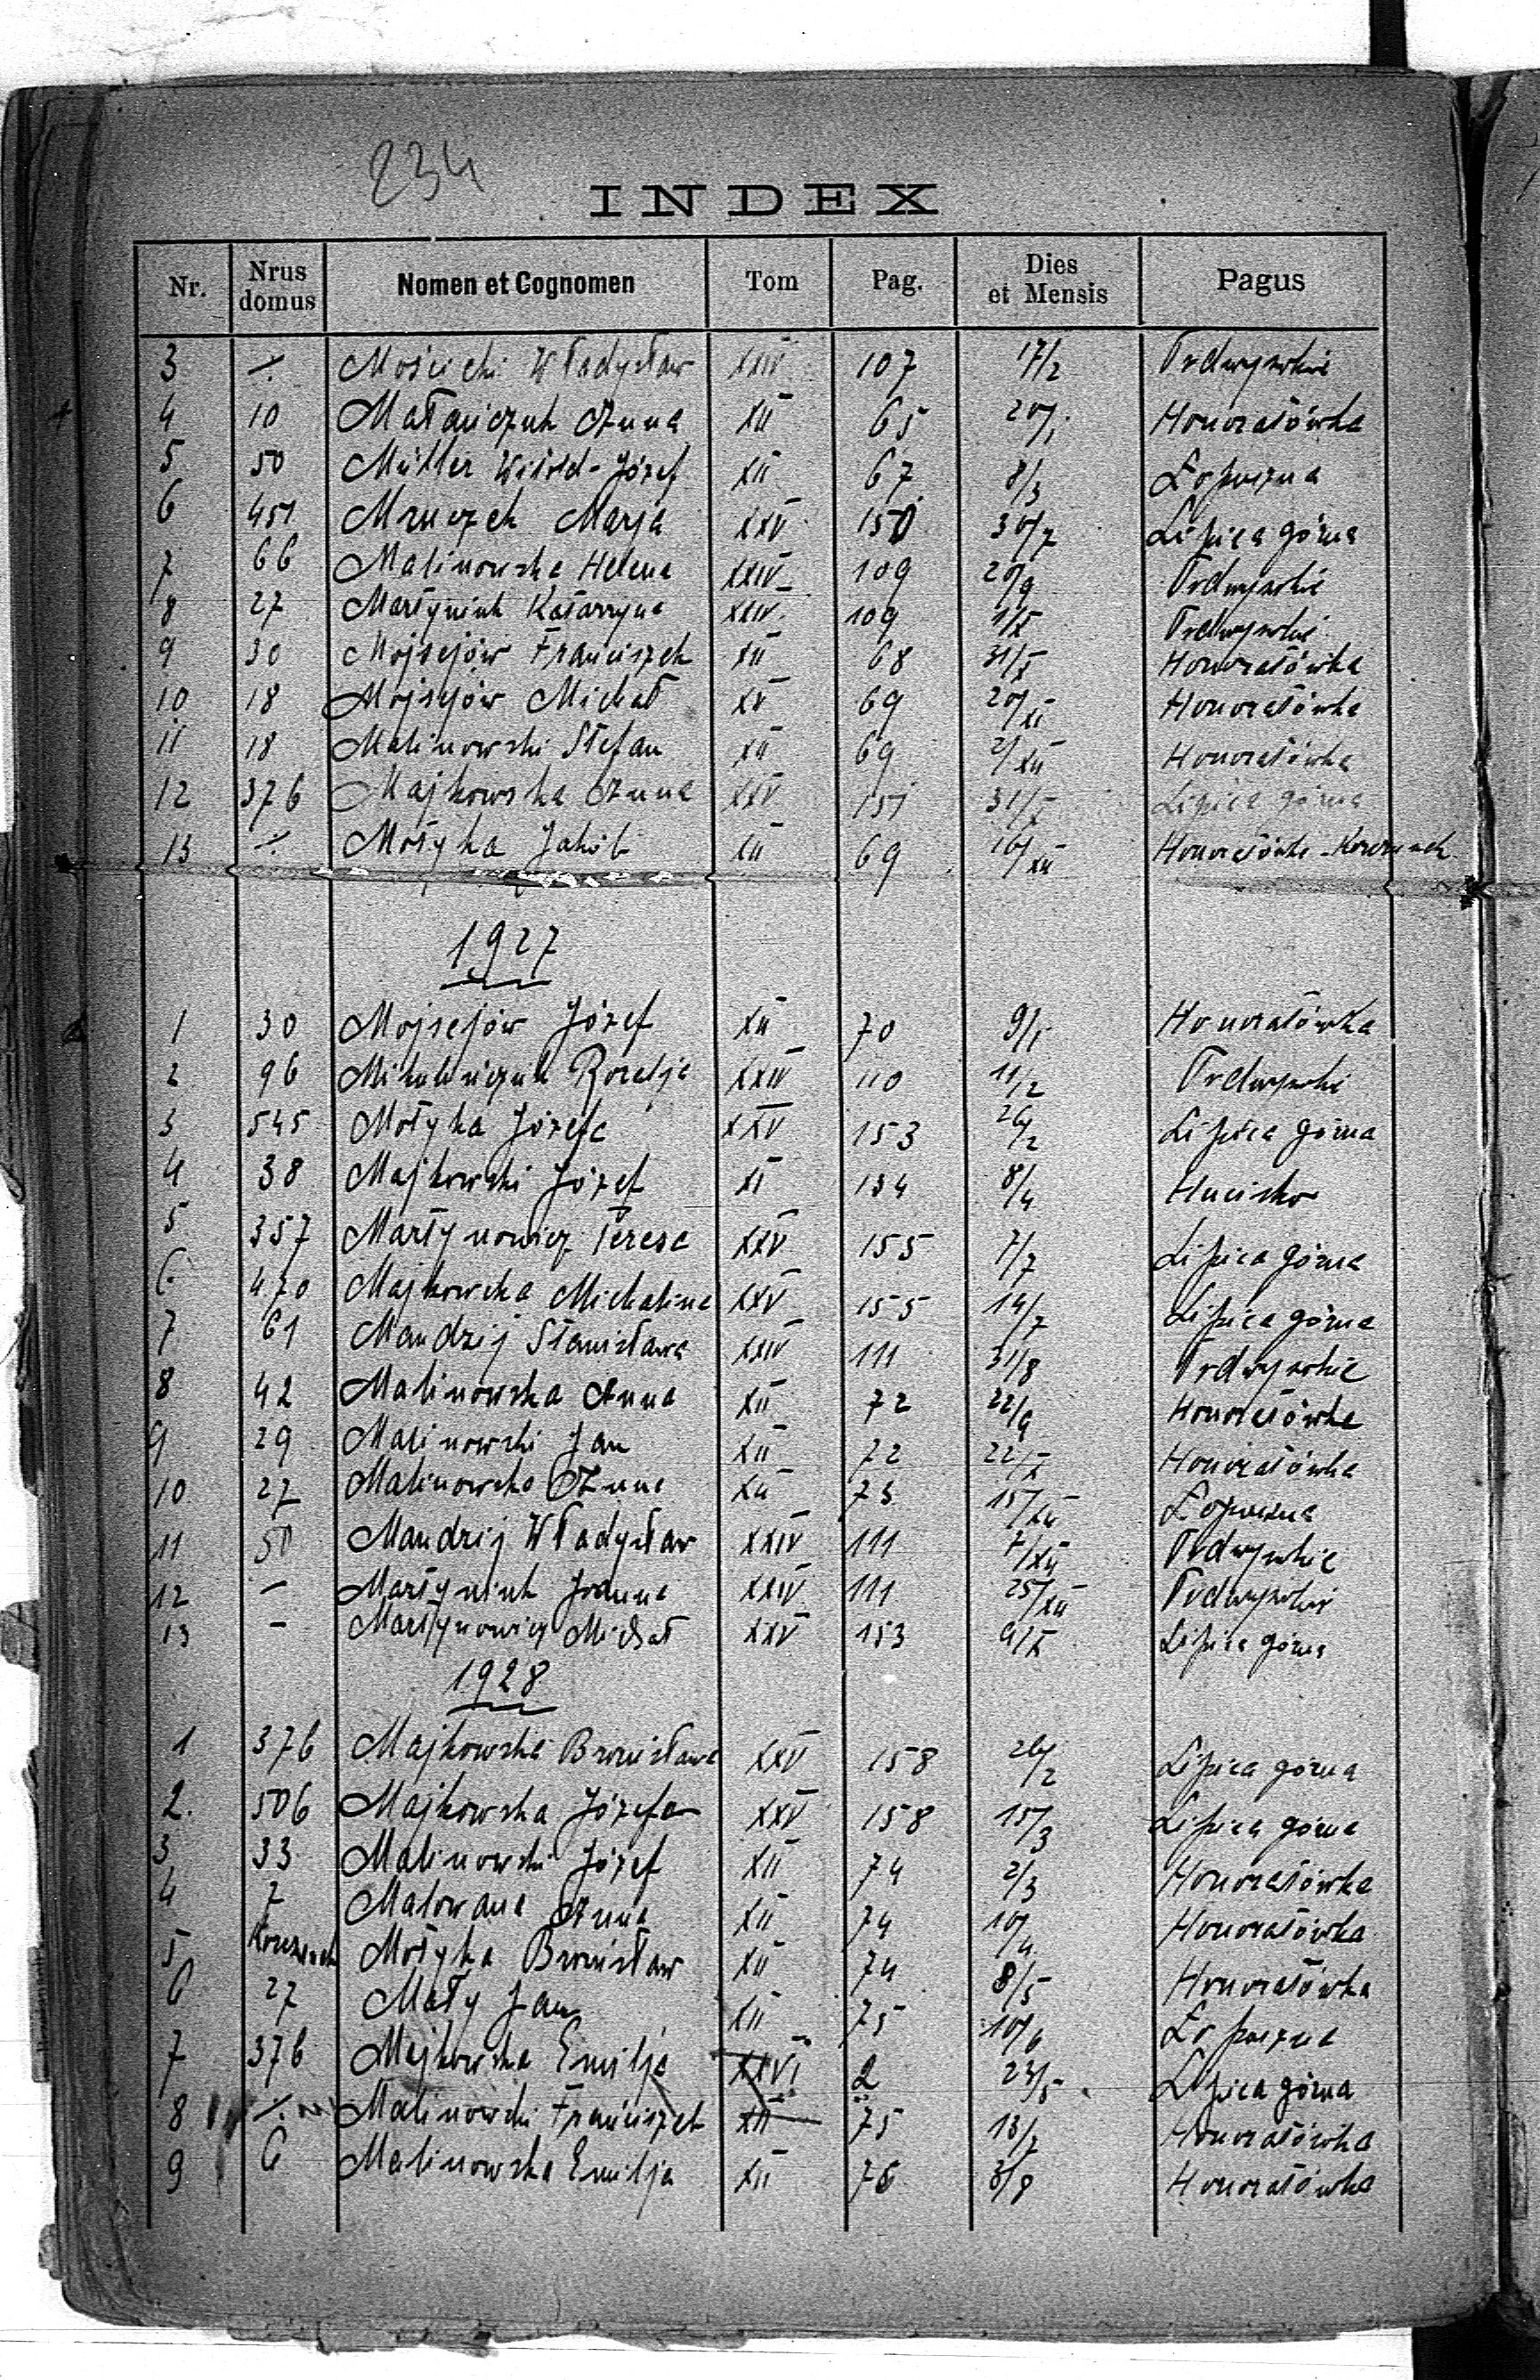 234
INDEX
Nr. Nrus domus Nomen et Cognomen Tom Pag. Dies et Mensis Pagus
3 ./. Mościcki Władysław XXIV 107 17/2
4 10 Anna XII 65 20/1 Honoratówka
5 50 Müller Witold-Józef XII 67 8/3 Łopuszna
6 451 Mruczek Marja XXV 150 30/7 Lipica górna
7 66 Malinowska Helena XXIV 109 20/9
8 27 Martyniuk Katarzyna XXIV 109 1/X
9 30 Mojsejów Franciszek XII 68 31/X Honoratówka
10 18 Mojsejów Michał XV 69 20/XI Honoratówka
11 18 Malinowski Stefan XII 69 2/XII Honoratówka
12 376 Majkowska Anna XXV 151 Lipica górna
13 ./. Motyka Jakób XII 69 16/XII
1927
1 30 Mojsejów Józef XII 70 9/1 Honoratówka
2 96 Rozalja XXIV 110 11/2
3 545 Motyka Józefa XXV 153 26/2 Lipica górna
4 38 Majkowski Józef XI 134 8/4 Hucisko
5 357 Martynowicz Teresa XXV 155 7/7 Lipica górna
6 470 Majkowska Michalina XXV 155 14/7 Lipica górna
7 61 Mandzij Stanisława XXIV 111 31/8
8 42 Malinowska Anna XII 72 22/9 Honoratówka
9 29 Malinowski Jan XII 72 22/X Honoratówka
10 27 Malinowska Anna XII 73 15/XII Łopuszna
11 50 Mandzij Władysław XXIV 111 7/XII
12 - Martyniuk Joanna XXIV 111 25/XII
13 - Martynowicz Michał XXV 153 9/X Lipica górna
1928
1 376 Majkowska Bronisława XXV 158 26/2 Lipica górna
2. 506 Majkowska Józefa XXV 158 15/3 Lipica górna
3 33 Malinowski Józef XII 74 2/3 Honoratówka
4 7 Malowana Anna XII 74 10/4 Honoratówka
5 Motyka Bronisław XII 74 8/5 Honoratówka
6 27 Mały Jan XII 75 10/6 Łopuszna
7 376 Majkowska Emilja XXVI 2 23/5 Lipica górna
8 ./. Malinowski Franciszek XII 75 13/7 Honoratówka
9 6 Malinowska Emilja XII 76 3/8 Honoratówka